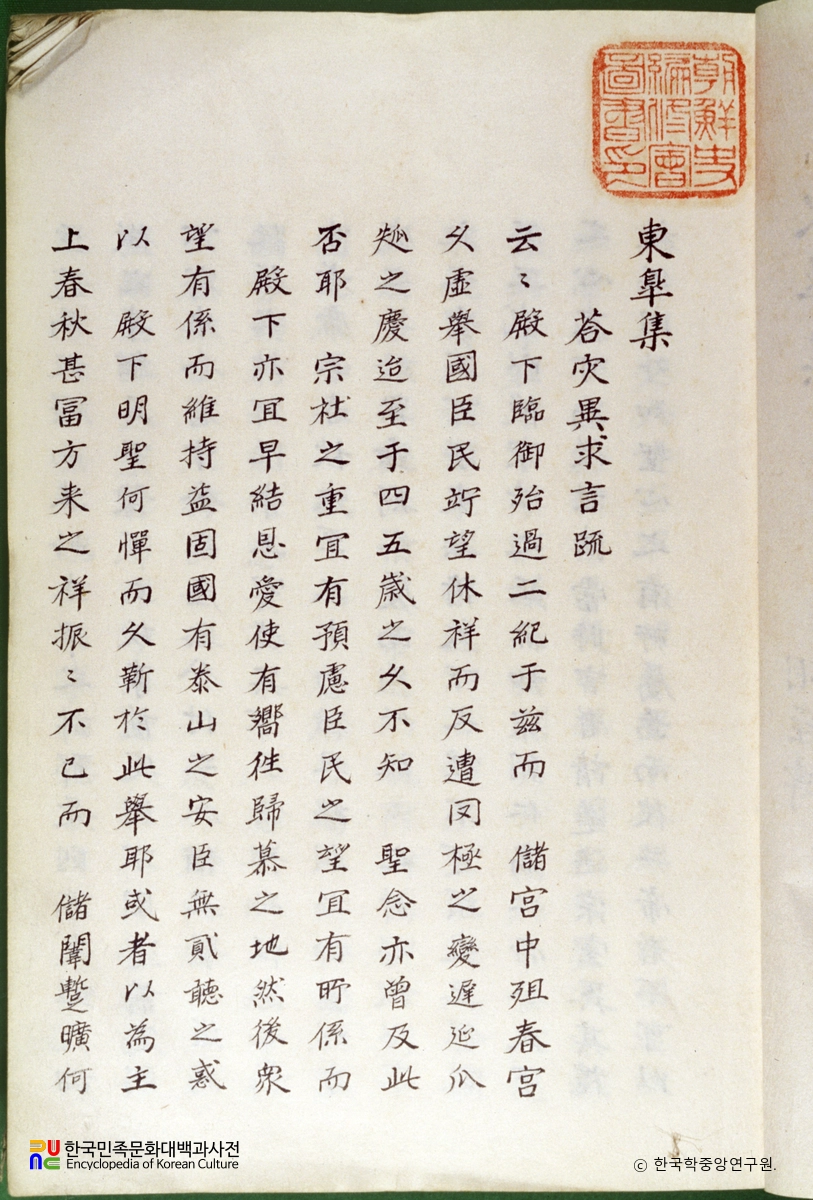 朝鮮史
編修會
圖書印
東皐集
荅灾異求言疏
云〻殿下臨御殆過二紀于兹而 儲宮中殂春宮
久虛舉國臣民竚望休祥而反遭罔極之變遲延瓜
瓞之慶迨至于四五歲之久不知 聖念亦曾及此
否耶 宗社之重宜有預慮臣民之望宜有所係而
殿下亦宜早結恩愛使有嚮徃歸慕之地然後衆
望有係而維持益固國有泰山之安臣無貳聽之惑
以 殿下明聖何憚而久靳於此舉耶或者以為主
上春秋甚冨方来之祥振〻不已而 儲闈蹔曠何
한국민족문화대백과사전
Encyclopedia of Korean Culture
© 한국학중앙연구원.